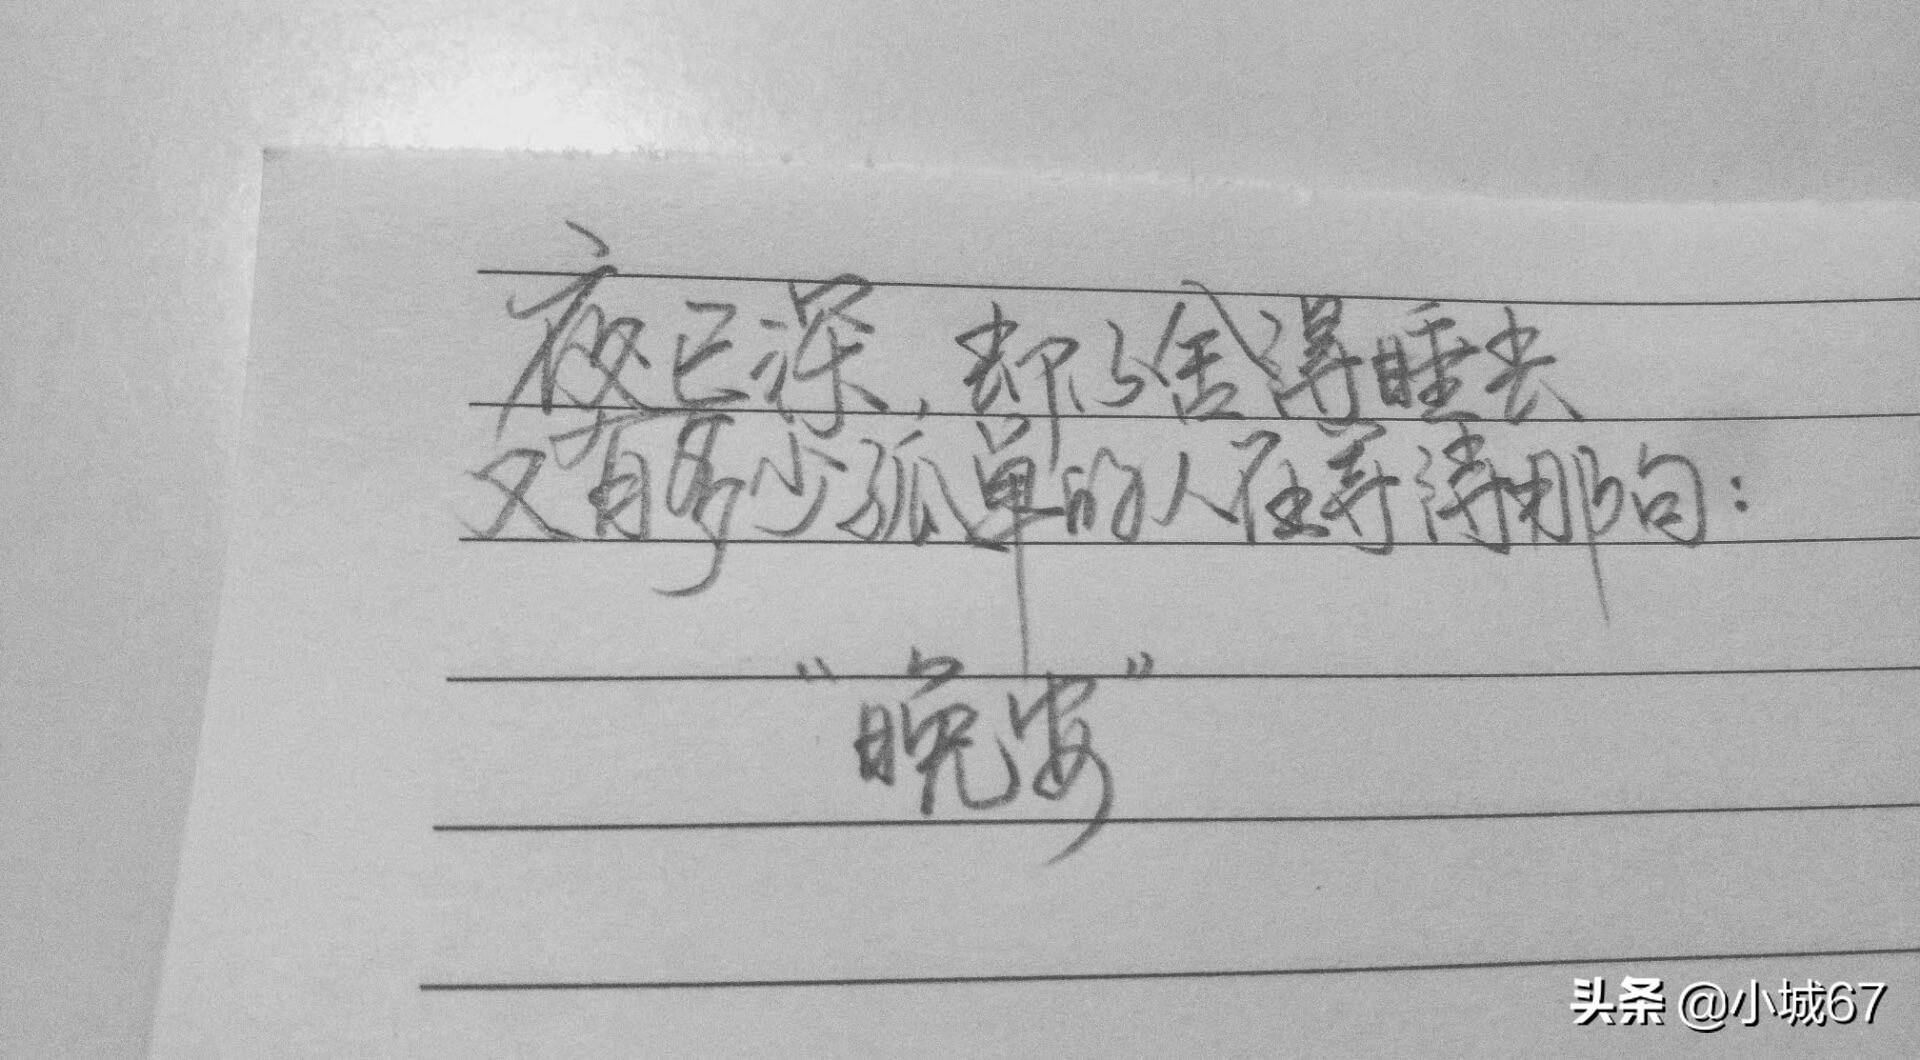 夜已深，却不舍得睡去
又有多少孤单的人在等待那句：
“晚安”
头条 @小城67